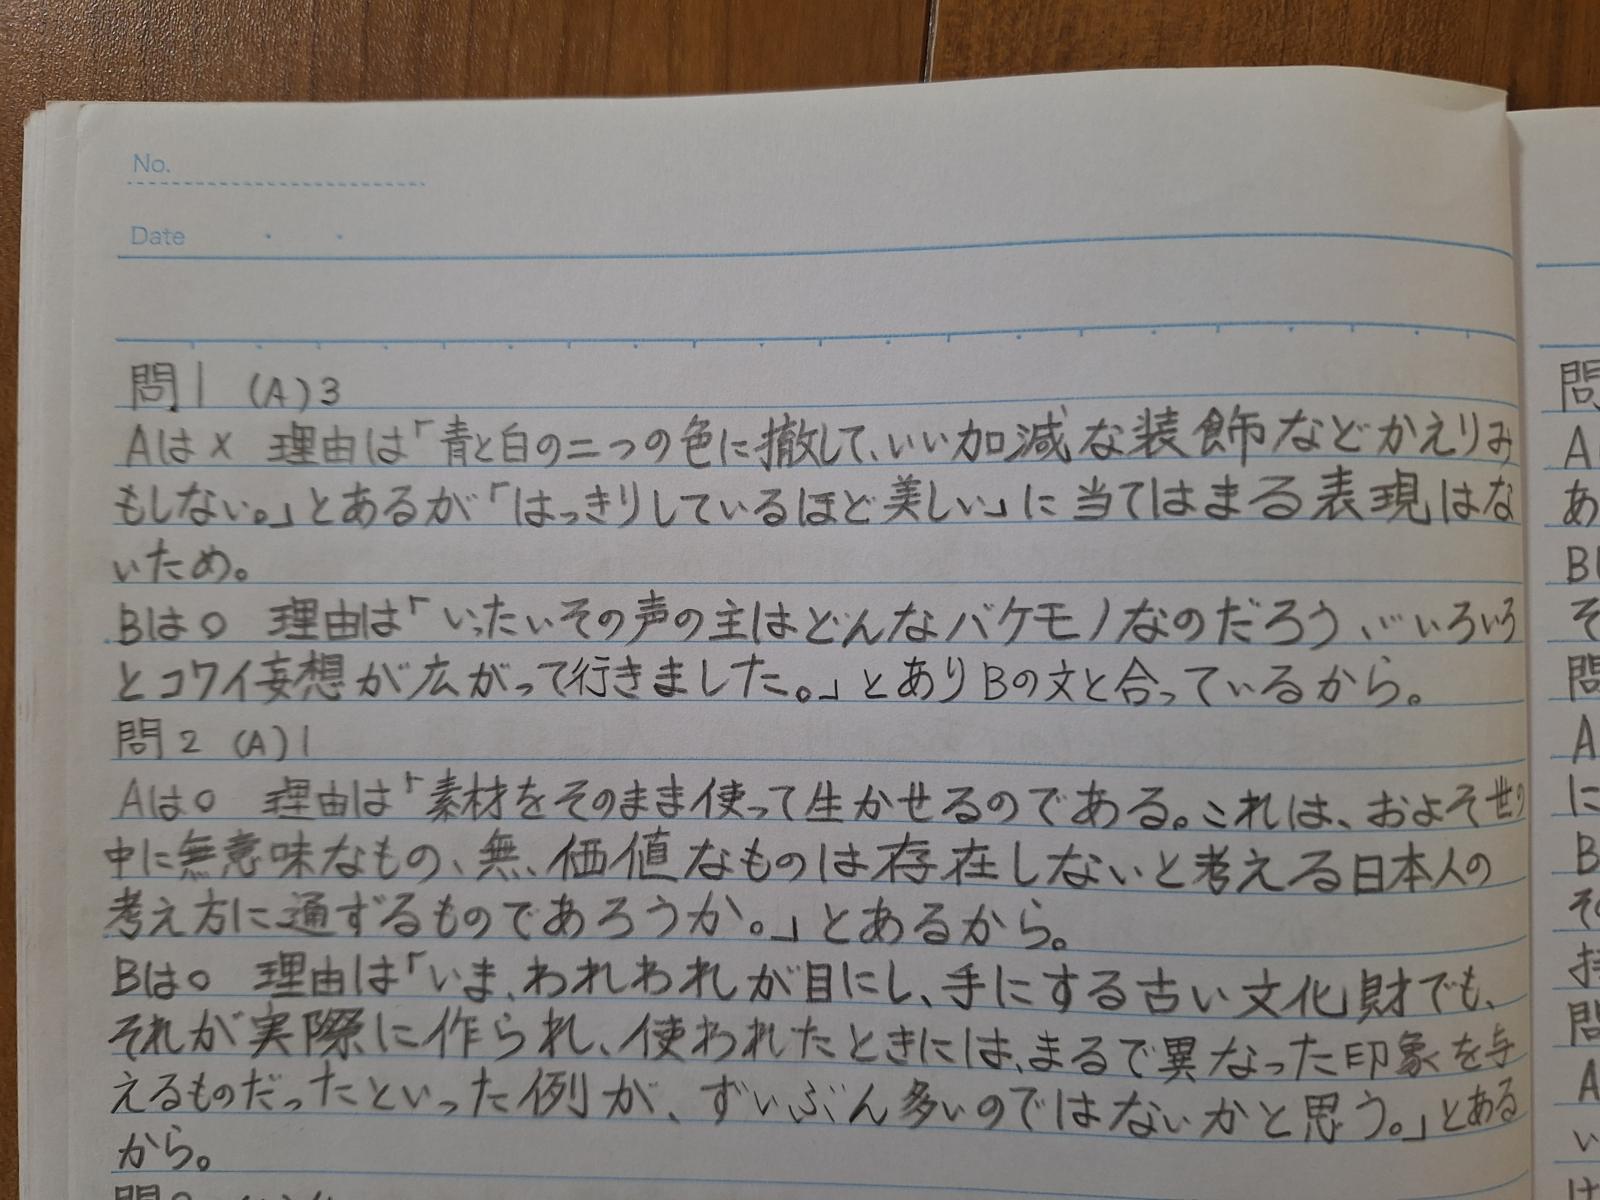 No.
Date
問1 (A)3
Aは× 理由は「青と白の二つの色に撤して、いい加減な装飾などかえりみ
もしない。」とあるが「はっきりしているほど美しい」に当てはまる表現はな
いため。
Bは○ 理由は「いったいその声の主はどんなバケモノなのだろう、…いろいろ
とコワイ妄想が広がって行きました。」とありBの文と合っているから。
問2 (A)1
Aは○ 理由は「素材をそのまま使って生かせるのである。これは、およそ世の
中に無意味なもの、無価値なものは存在しないと考える日本人の
考え方に通ずるものであろうか。」とあるから。
Bは○ 理由は「いま、われわれが目にし、手にする古い文化財でも、
それが実際に作られ、使われたときには、まるで異なった印象を与
えるものだったといった例が、ずいぶん多いのではないかと思う。」とある
から。
問
A
あ
B
そ
問
A
に
B
その
持
問
A
い
は